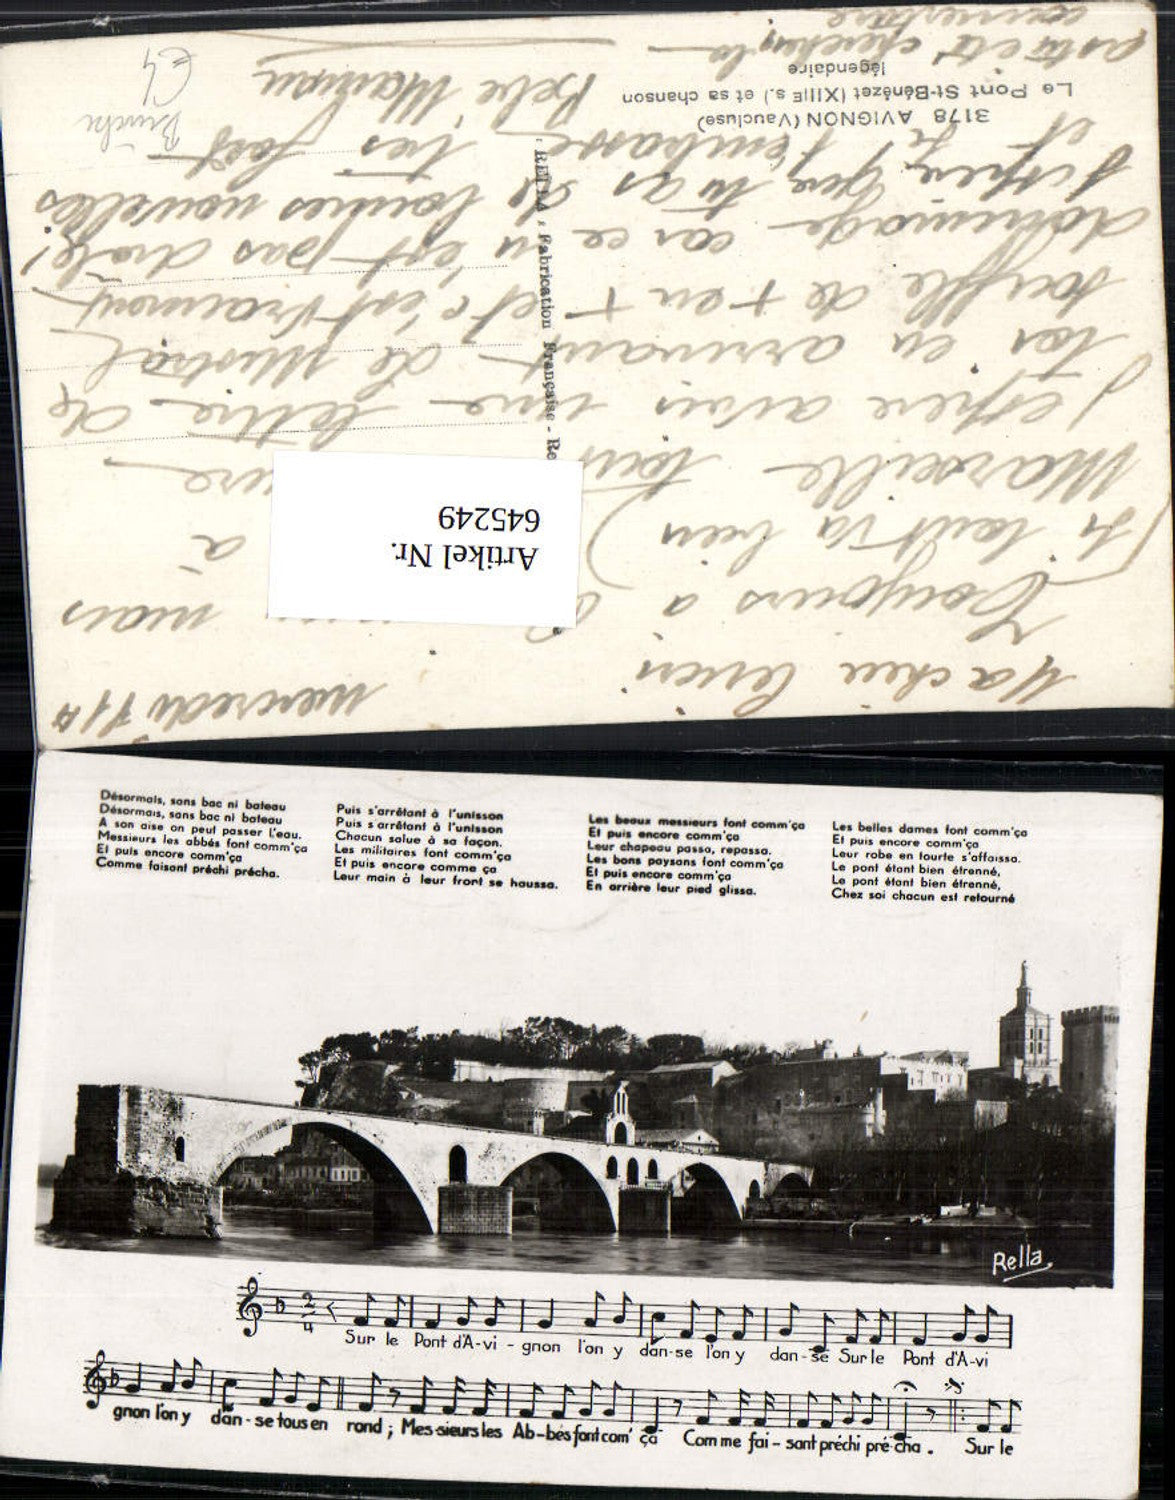 mercredi 11
Ma chère
Toujours à mais
(si tout va bien) à
Marseille tous
J'espère avoir une lettre de
toi en arrivant
souffle de + en + et c'est vraiment
dommage car ce n'est pas drôle!
J'espère que tu as de bonnes nouvelles
et t'embrasse très fort
Artikel Nr.
645249
RELLA : Fabrication Française - Re
3178 AVIGNON (Vaucluse)
Le Pont St-Bénézet (XIIIE s.) et sa chanson
légendaire
€4
Désormais, sans bac ni bateau
Désormais, sans bac ni bateau
A son aise on peut passer l'eau.
Messieurs les abbés font comm'ça
Et puis encore comm'ça
Comme faisant préchi précha.
Puis s'arrêtant à l'unisson
Puis s'arrêtant à l'unisson
Chacun salue à sa façon.
Les militaires font comm'ça
Et puis encore comme ça
Leur main à leur front se haussa.
Les beaux messieurs font comm'ça
Et puis encore comm'ça
Leur chapeau passa, repassa.
Les bons paysans font comm'ça
Et puis encore comm'ça
En arrière leur pied glissa.
Les belles dames font comm'ça
Et puis encore comm'ça
Leur robe en tourte s'affaissa.
Le pont étant bien étrenné,
Le pont étant bien étrenné,
Chez soi chacun est retourné
Rella
2
4
Sur le Pont d'A-vi - gnon l'on y dan-se l'on y dan-se Sur le Pont d'A-vi
gnon l'on y dan-se tous en rond ; Mes-sieurs les Ab-bés font com' ça Comme fai-sant préchi pré-cha. Sur le